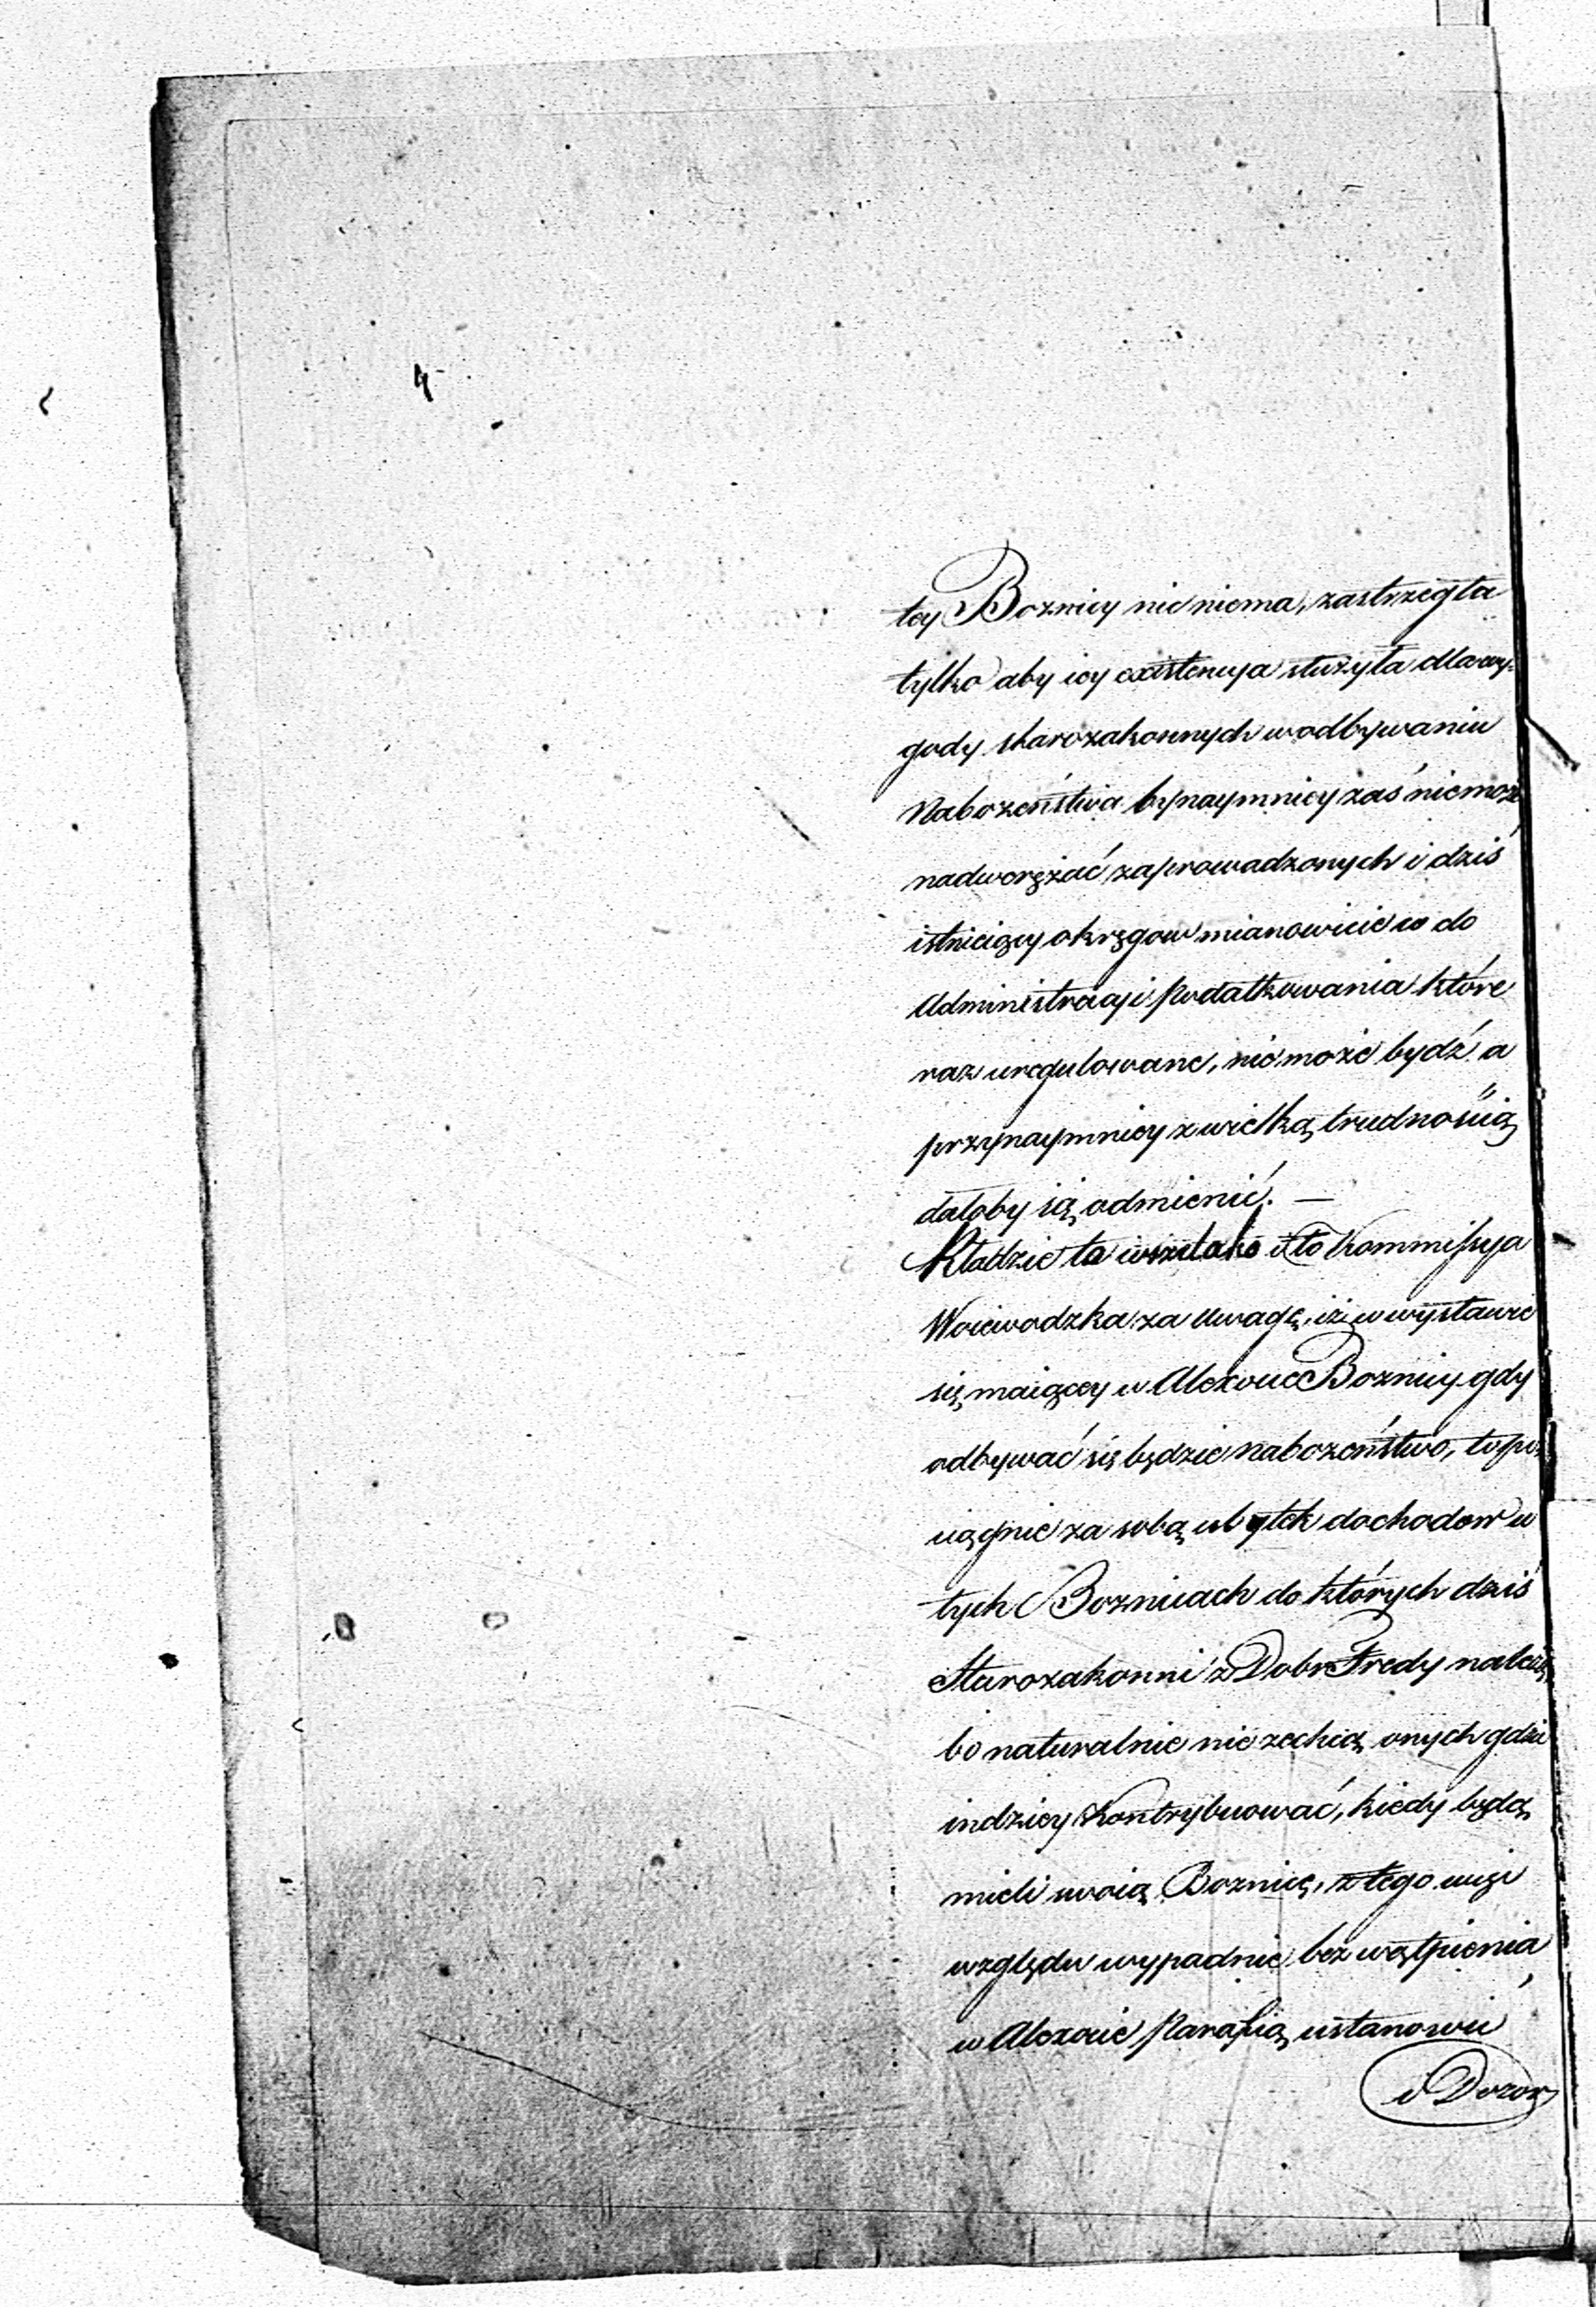 tey Boznicy nic niema, zastrzegła
tylko aby iey existencya służyła dla wy-
gody starozakonnych w odbywaniu
Nabożeństwa bynaymniey zaś niemoże
nadwerężać zaprowadzonych i dziś
istnieięcy okręgow mianowicie co do
Administracyi podatkowania które
raz uregulowane, nie może bydź a
przynaymniey z wielką trudnością
dałoby się odmienić. —
Kładzie ta wszelako i to Kommissya
Woiewodzka za uwagę, iż w wystawie
się maiącey w Alexowie Boznicy gdy
odbywać się będzie nabożeństwo, to po-
ciągnie za sobą ubytek dochodow w
tych Boznicach do których dziś
Starozakonni z Dobr Fredy należą,
bo naturalnie nie zechcą onych gdzie
indziey Kontrybuować, kiedy będą
mieli swoią Boznicę, z tego więc
względu wypadnie bez wątpienia
w Alexowie Parafią ustanowić
i Dozor